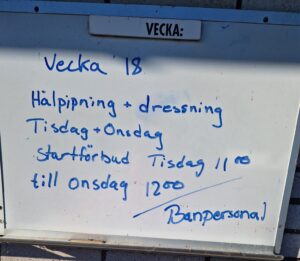 VECKA:
Vecka 18
Hålpipning + dressning
Tisdag + Onsdag
Startförbud Tisdag 11 00
till onsdag 12 00
Banpersonal